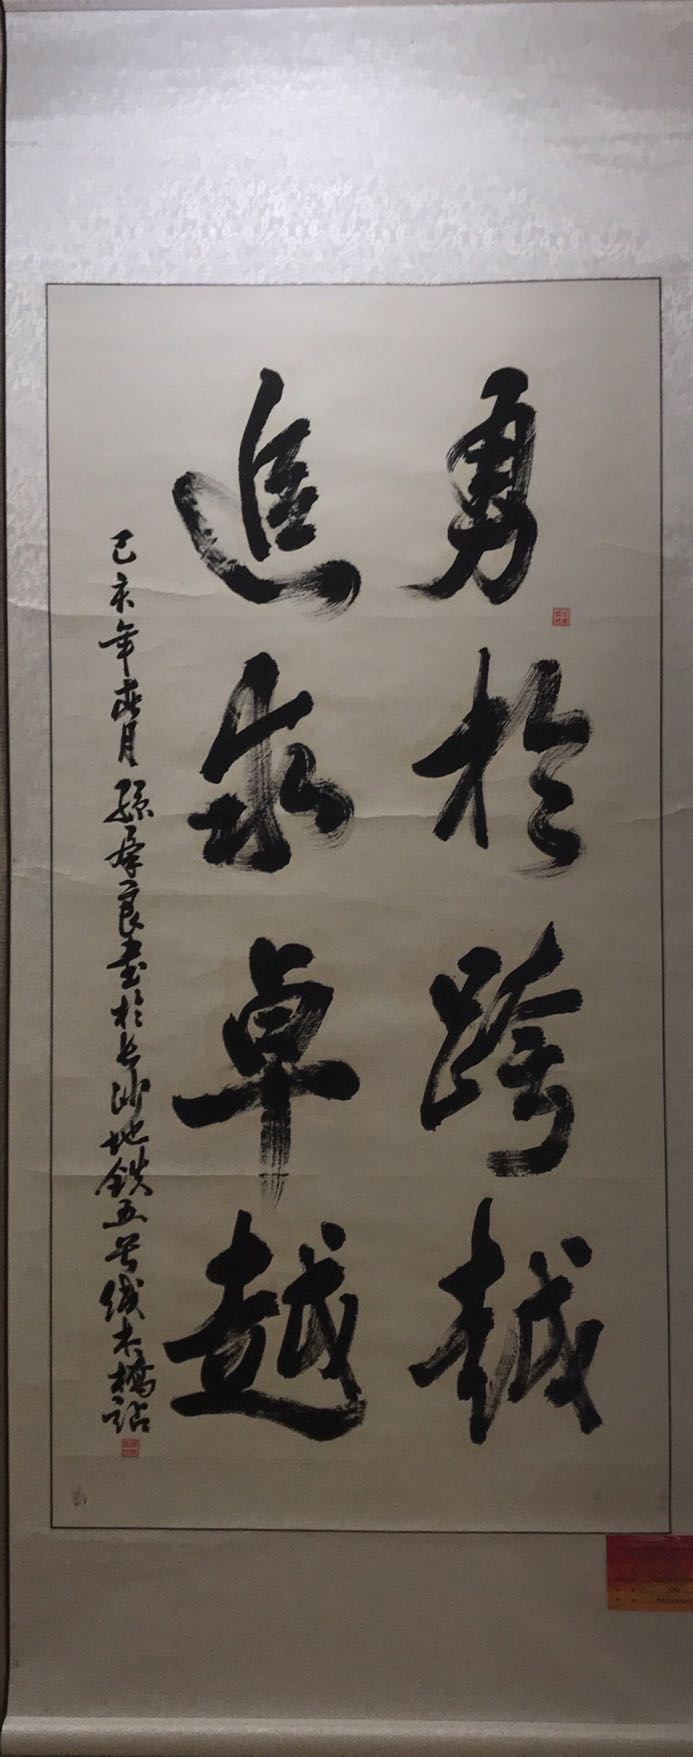 勇於跨越
追求卓越
己亥年春月孫彥良書於長沙地鉄五号线木橋站